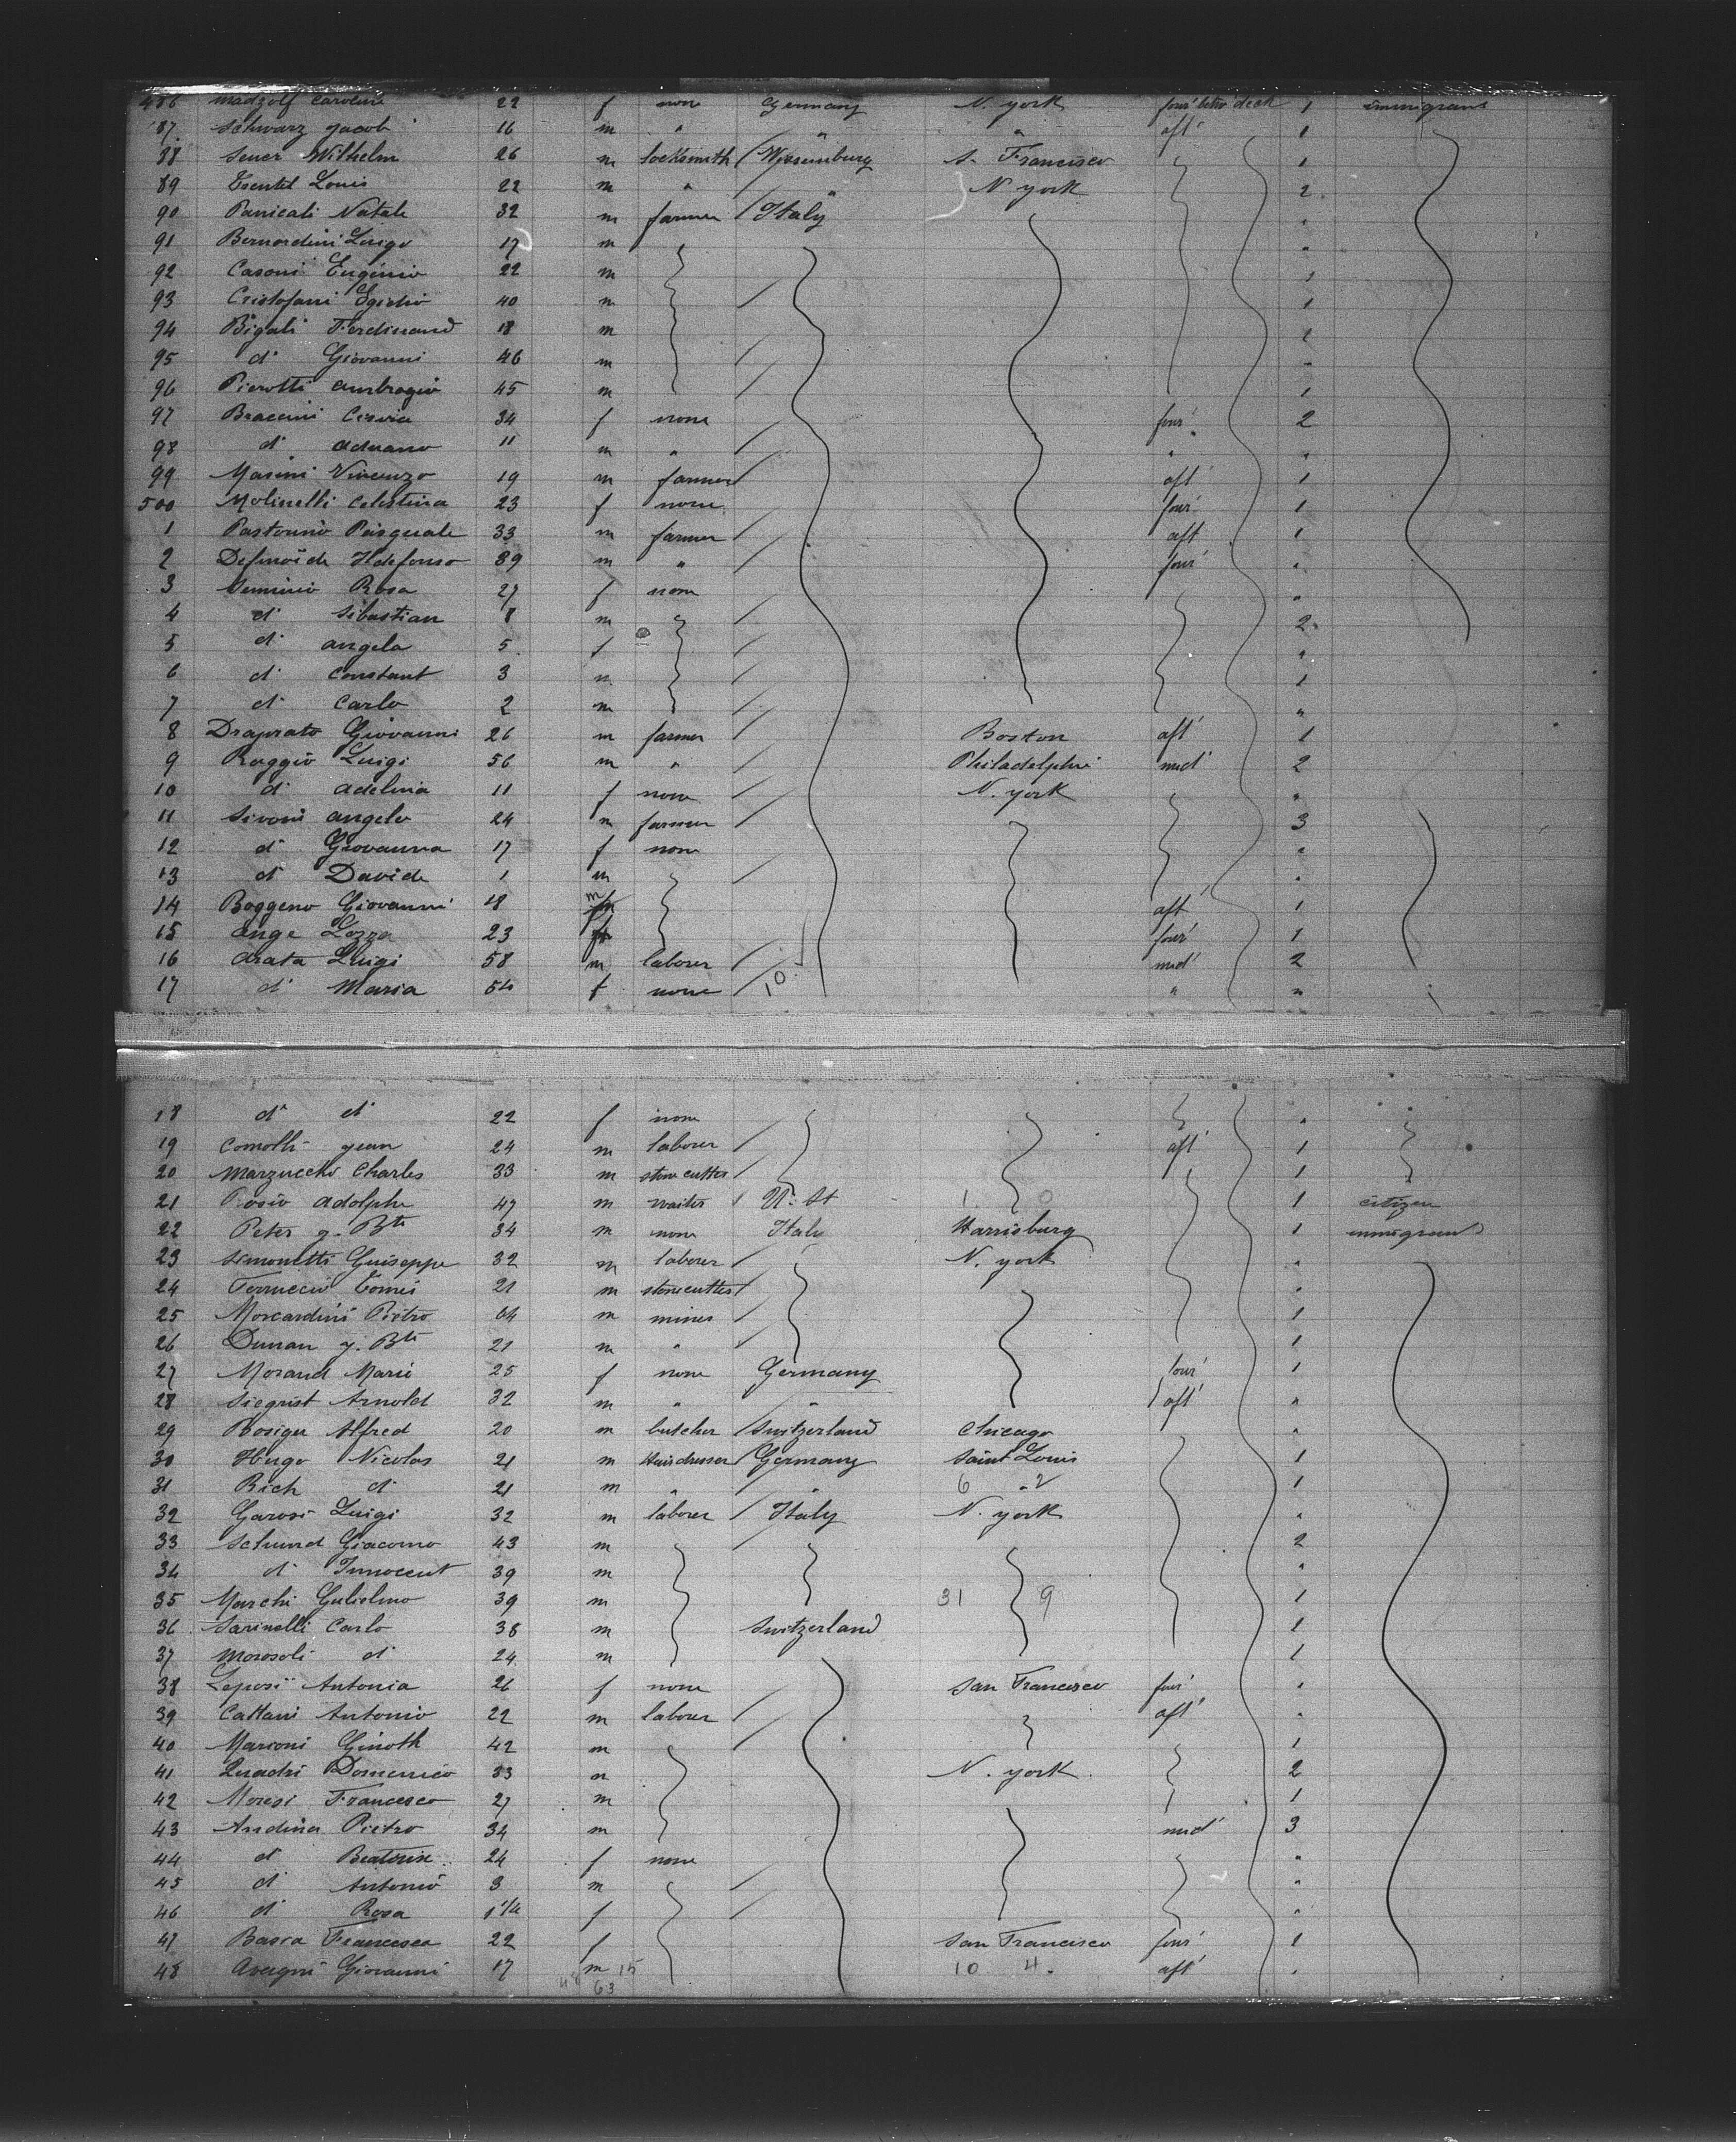 486 Madzolf Caroline 22 f none Germany N. york four' betw' deck 1 immigrant
87 Schwarz Jacob 16 m " " " aft' 1
88 Seuer Wilhelm 26 m locksmith / Wissemburg S. Francisco 1
89 Louis 22 m " / " N. york 2
90 Panicali Natale 32 m farmer / Italy "
91 Bernardini Luigo 17 m "
92 Casoni Eugenio 22 m 1
93 Cristofani Egidio 40 m / 1
94 Bigali Ferdinand 18 m 2
95 d° Giovanni 46 m / "
96 Pierotti ambrogio 45 m / 1
97 Braccini 34 f none / four' 2
98 d° aduano 11 m " / " "
99 Masini Vincenzo 19 m farmer / aft' 1
500 Molinelli Celestina 23 f none four' 1
1 Pastorino Pasquale 33 m farmer / aft 1
2 Ildefonso 39 m " / four' "
3 Rosa 27 f none "
4 d° Sebastian 8 m / 2
5 d° angela 5 f / "
6 d° Constant 3 m / 1
7 d° Carlo 2 m / "
8 Draprato Giovanni 26 m farmer / Boston aft' 1
9 Raggio Luigi 56 m " / Philadelphie mid' 2
10 d° adelina 11 f none / N. york "
11 Sivori angelo 24 m farmer / 3
12 d° Giovanna 17 f none "
13 d° Davide 1 m / "
14 Boggeno Giovanni 18 m aft' 1
15 Enge Lozza 23 f four' 1
16 Arata Luigi 58 m laborer / mid' 2
17 d° Maria 54 f none / 10 " "
18 d° d° 22 f none "
19 Comolli Jean 24 m laborer / aft' 1
20 Marzucchi Charles 33 m stone cutter / 1
21 adolphe 47 m waiter / U. St 1 0 1 citizen
22 Peter J. Bte 34 m none Italy Harrisburg 1 immigrant
23 Simonetti Guiseppe 32 m laborer / N. york "
24 Ferruccio 21 m stonecutter / "
25 Moscardini Pietro 64 m miner / 1
26 Dunan J. Bte 21 m " / 1
27 Morand Marie 25 f none Germany four' 1
28 Siegrist Arnold 32 m " " aft' "
29 Bosiger Alfred 20 m butcher / Switzerland Chicago "
30 Hugo Nicolas 21 m Hairdresser / Germany Saint Louis 1
31 Rich d° 21 m " / " 6 " 2 1
32 Garosi Luigi 32 m laborer / Italy N. york "
33 Schmid Giacomo 43 m / 2
34 d° Innocent 39 m "
35 Marchi Gulielmo 39 m 31 9 1
36 Sarinelli Carlo 38 m Switzerland 1
37 Morosoli d° 24 m 1
38 Leposi Antonia 26 f none San Francisco four' "
39 Cattani Antonio 22 m laborer / aft' "
40 Marioni Ginoth 42 m / 1
41 Quadri Domenico 33 m N. york 2
42 Moresi Francesco 27 m 1
43 Andina Pietro 34 m mid' 3
44 d° 24 f none "
45 d° Antonio 3 m / "
46 d° Rosa 1 1/4 f / "
47 Basca Francesca 22 f San Francisco four' 1
48 Giovanni 17 m 15 10 4 aft' "
48 63